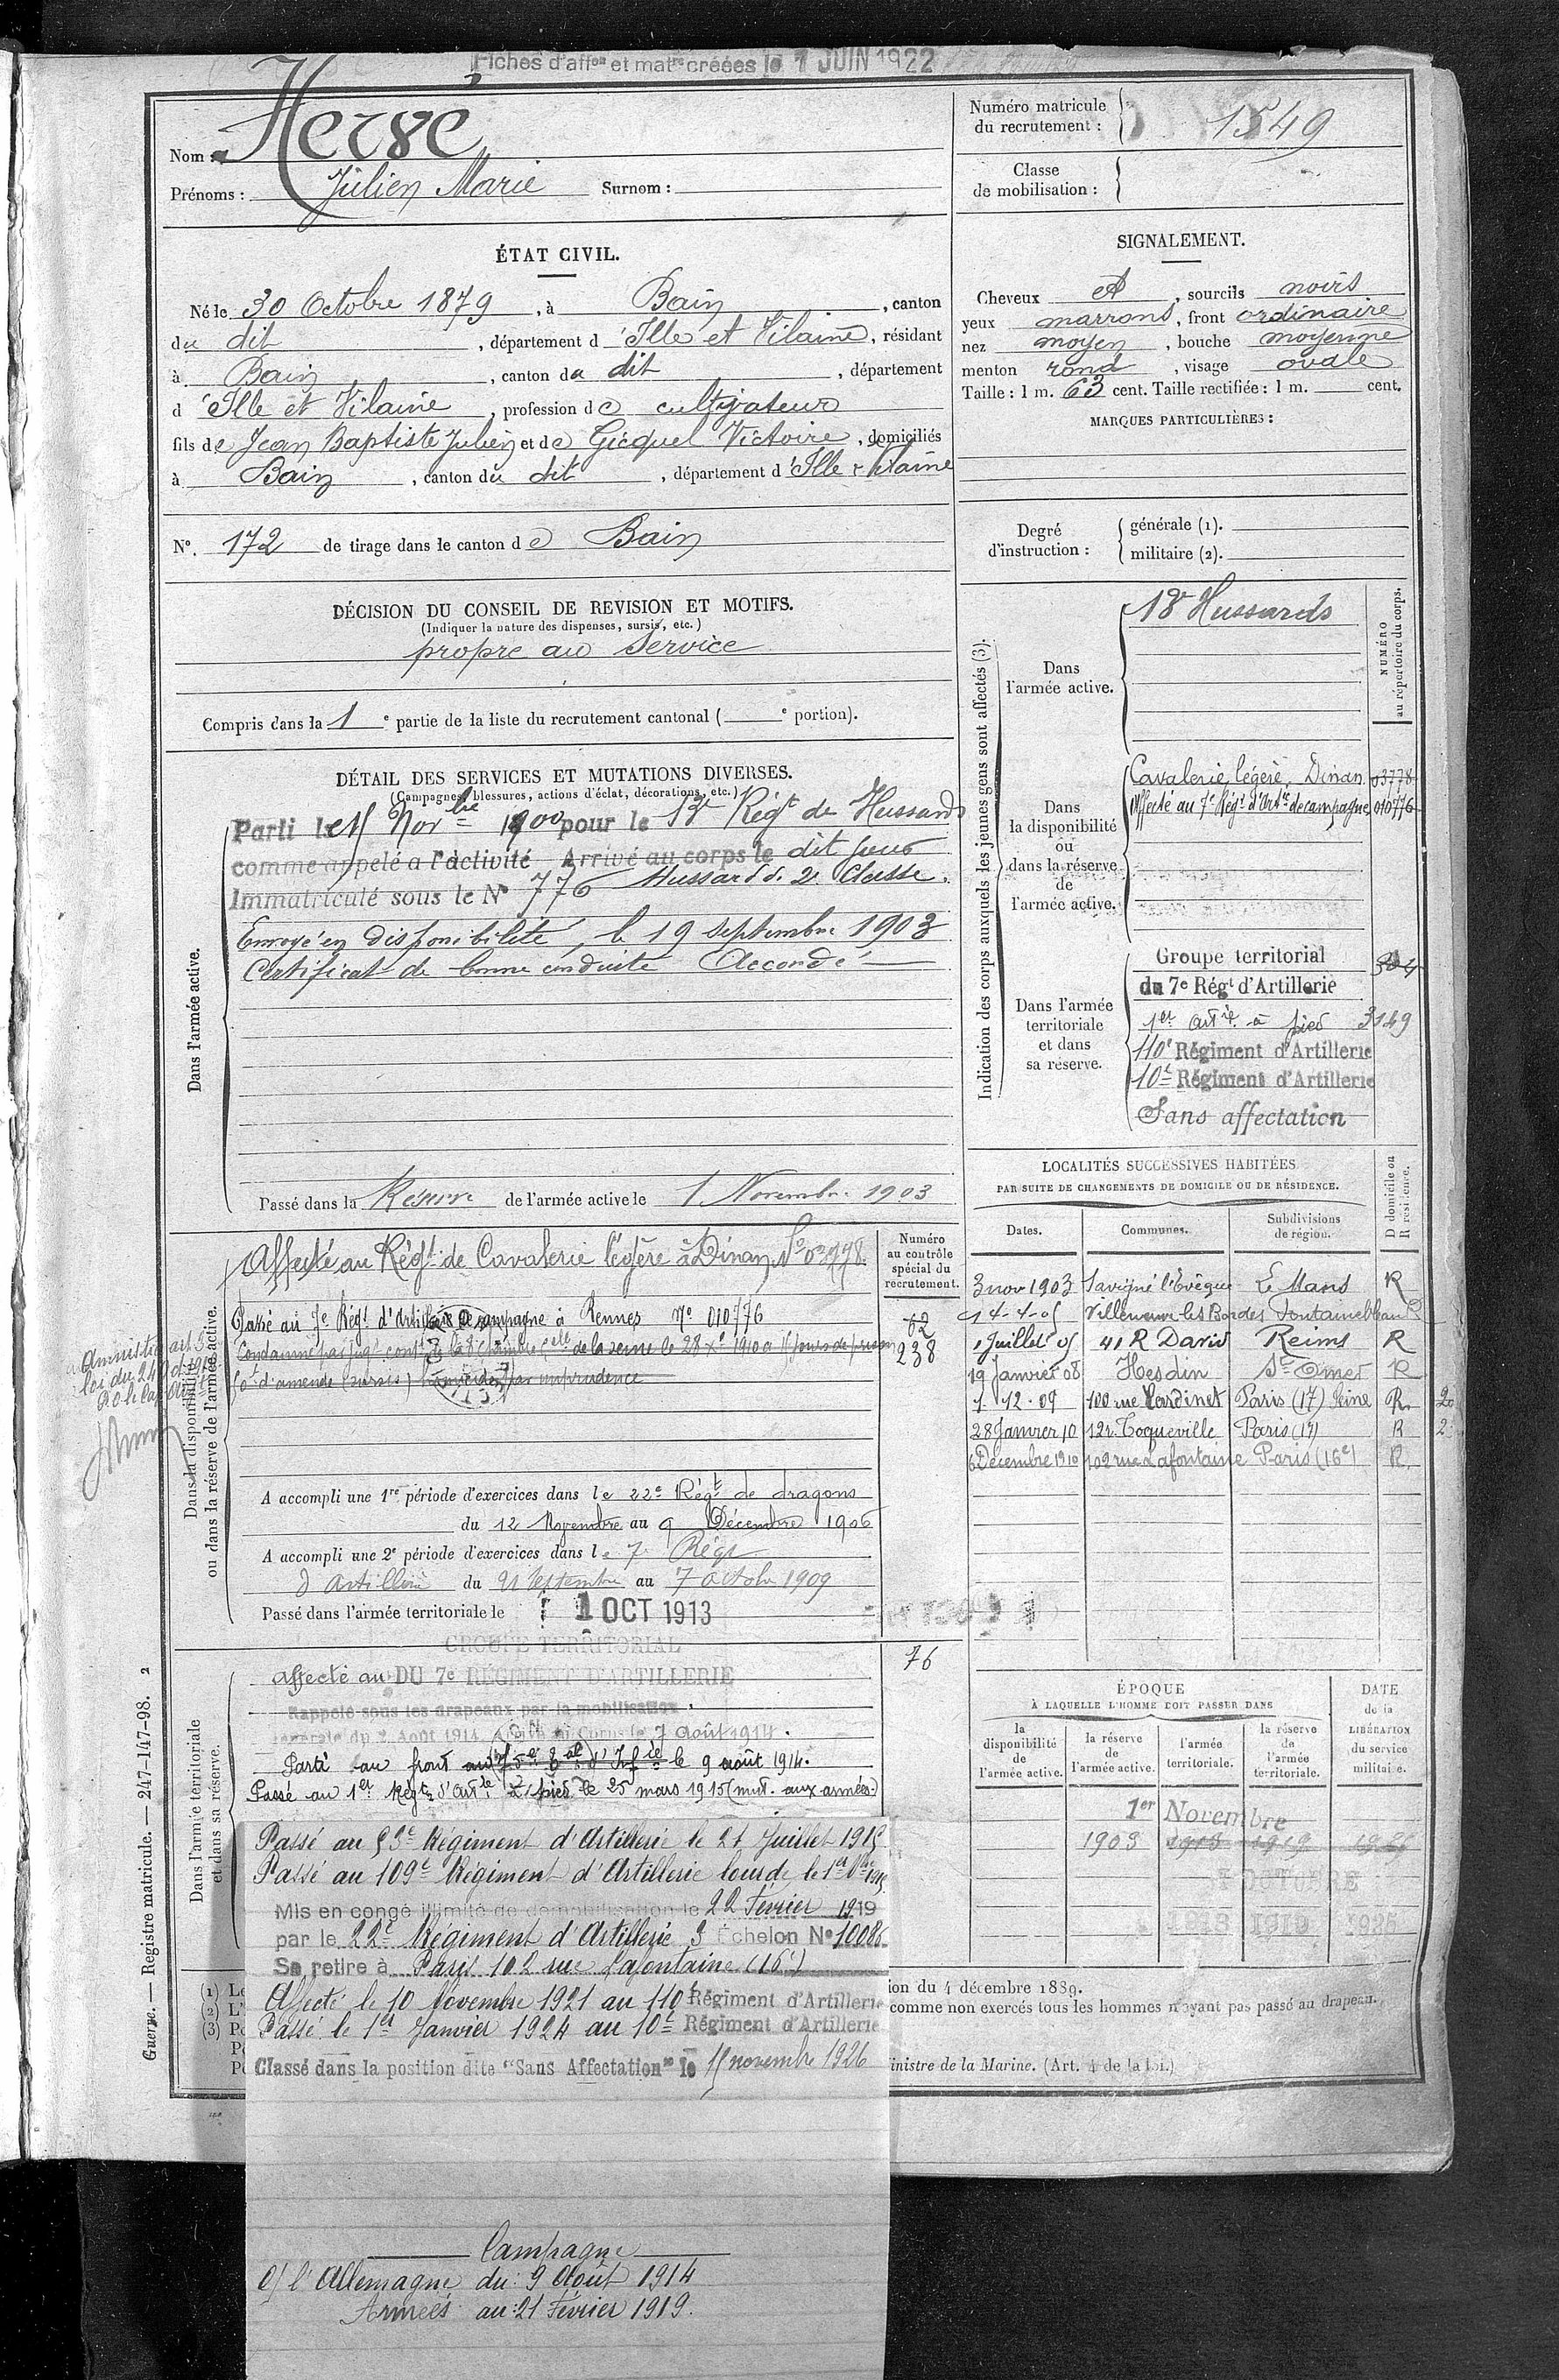 Fiches d'affon et matre créées le 1 JUIN 1922
Nom : Hervé
Prénoms : Julien Marie Surnom :
Numéro matricule du recrutement : 1549
Classe de mobilisation :
ÉTAT CIVIL.
Né le 30 Octobre 1879, à Bain, canton
du dit, département d'Ille et Vilaine, résidant
à Bain, canton du dit, département
d'Ille et Vilaine, profession de cultivateur
fils de Jean Baptiste Julien et de Gicquel Victoire, domiciliés
à Bain, canton du dit, département d'Ille & Vilaine
N°. 172 de tirage dans le canton de Bain
SIGNALEMENT.
Cheveux et, sourcils noirs
yeux marrons, front ordinaire
nez moyen, bouche moyenne
menton rond, visage ovale
Taille : 1 m. 63 cent. Taille rectifiée : 1 m. cent.
MARQUES PARTICULIÈRES :
Degré d'instruction : générale (1).
militaire (2).
DÉCISION DU CONSEIL DE REVISION ET MOTIFS.
(Indiquer la nature des dispenses, sursis, etc.)
propre au service
Compris dans la 1e partie de la liste du recrutement cantonal ( e portion).
DÉTAIL DES SERVICES ET MUTATIONS DIVERSES.
(Campagnes, blessures, actions d'éclat, décorations, etc.)
Dans l'armée active.
Parti le 15 Novbre 1900 pour le 13e Régt de Hussards
comme appelé a l'activité Arrivé au corps le dit jour
Immatriculé sous le N° 776 Hussard de 2e Classe.
Envoyé en disponibilité, le 19 septembre 1903
Certificat de bonne conduite Accordé
Passé dans la Réserve de l'armée active le 1 Novembre 1903
Indication des corps auxquels les jeunes gens sont affectés (3).
NUMÉRO au répertoire du corps.
Dans l'armée active.
Hussards
Dans la disponibilité ou dans la réserve de l'armée active.
Cavalerie légère Dinan 03778
Affecté au 7e Régt d'Artie de campagne 010776
Dans l'armée territoriale et dans sa réserve.
Groupe territorial 304
du 7e Régt d'Artillerie
1er artie à pied 3149
110e Régiment d'Artillerie
10e Régiment d'Artillerie
Sans affectation
Dans la disponibilité ou dans la réserve de l'armée active.
Numéro au contrôle spécial du recrutement.
Affecté au Régt de Cavalerie légère à Dinan No 03778
Passé au 7e Régt d'Artillerie de campagne à Rennes No 010776 62
Condamné par jugt de la 8e chambre de la Seine le 28 Xe 1910 à 15 jours de prison 238
d'amende (sursis) par imprudence
Amnistie art 5
loi du 24
A accompli une 1re période d'exercices dans le 22e Régt de dragons
du 12 Novembre au 9 Décembre 1906
A accompli une 2e période d'exercices dans le 7e Régt
d'artillerie du 21 septembre au 7 octobre 1909
Passé dans l'armée territoriale le 1 OCT 1913
LOCALITÉS SUCCESSIVES HABITÉES
PAR SUITE DE CHANGEMENTS DE DOMICILE OU DE RÉSIDENCE.
Dates. Communes. Subdivisions de région. D domicile ou R résidence.
3 nov 1903 Savigné l'Evêque Le Mans R
14-4-05 Villeneuve les Bordes Fontainebleau R
1 Juillet 05 41 R David Reims R
19 Janvier 08 Hesdin St Omer R
1-12-09 100 rue Cardinet Paris (17) Seine R
28 Janvier 10 12 r. Tocqueville Paris (17) R
6 Décembre 1910 102 rue Lafontaine Paris (16e) R
Dans l'armée territoriale et dans sa réserve.
76
affecté au GROUPE TERRITORIAL DU 7e RÉGIMENT D'ARTILLERIE
Rappelé sous les drapeaux par la mobilisation
générale du 2 Août 1914. Arrivé au Corps le 7 août 1914.
Parti au front le 9 août 1914.
Passé au 1er Régt d'Artie à pied le 25 mars 1915 (mut. aux armées)
Passé au 53e Régiment d'Artillerie le 21 Juillet 1915
Passé au 109e Régiment d'Artillerie lourde le 1er
Mis en congé illimité de démobilisation le 22 Février 1919
par le 22e Régiment d'Artillerie 3 Echelon No 10086
Se retire à Paris 102 rue Lafontaine (16e)
Affecté le 10 Novembre 1921 au 110e Régiment d'Artillerie
Passé le 1er Janvier 1924 au 10e Régiment d'Artillerie
Classé dans la position dite "Sans Affectation" le 15 novembre 1926
Campagne
c/ l'Allemagne du : 9 Août 1914
Armées au : 21 Février 1919.
ÉPOQUE
À LAQUELLE L'HOMME DOIT PASSER DANS
DATE de la LIBÉRATION du service militaire.
la disponibilité de l'armée active. la réserve de l'armée active. l'armée territoriale. la réserve de l'armée territoriale.
1er Novembre
1903 1913 1919
OCTOBRE
1913 1919 1925
ion du 4 décembre 1889.
comme non exercés tous les hommes n'ayant pas passé au drapeau.
inistre de la Marine. (Art. 4 de la loi.)
Guerre. — Registre matricule. — 247-147-98. 2